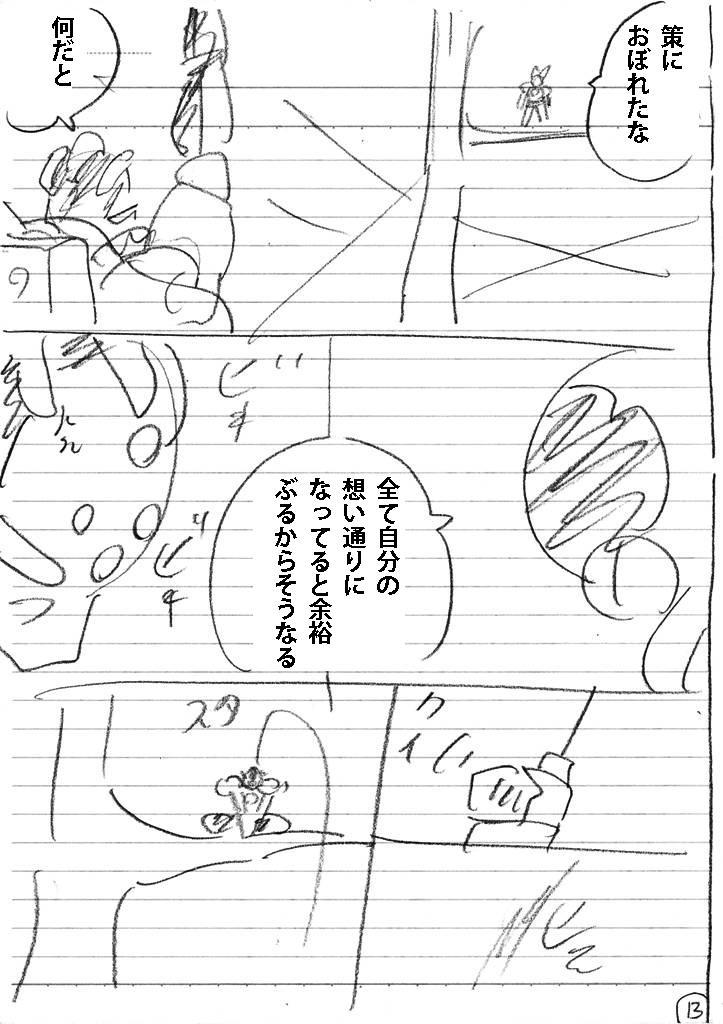 策に
おぼれたな
何だと
全て自分の
想い通りに
なってると余裕
ぶるからそうなる
ビキ
ビキ
スタ
クイッ
13